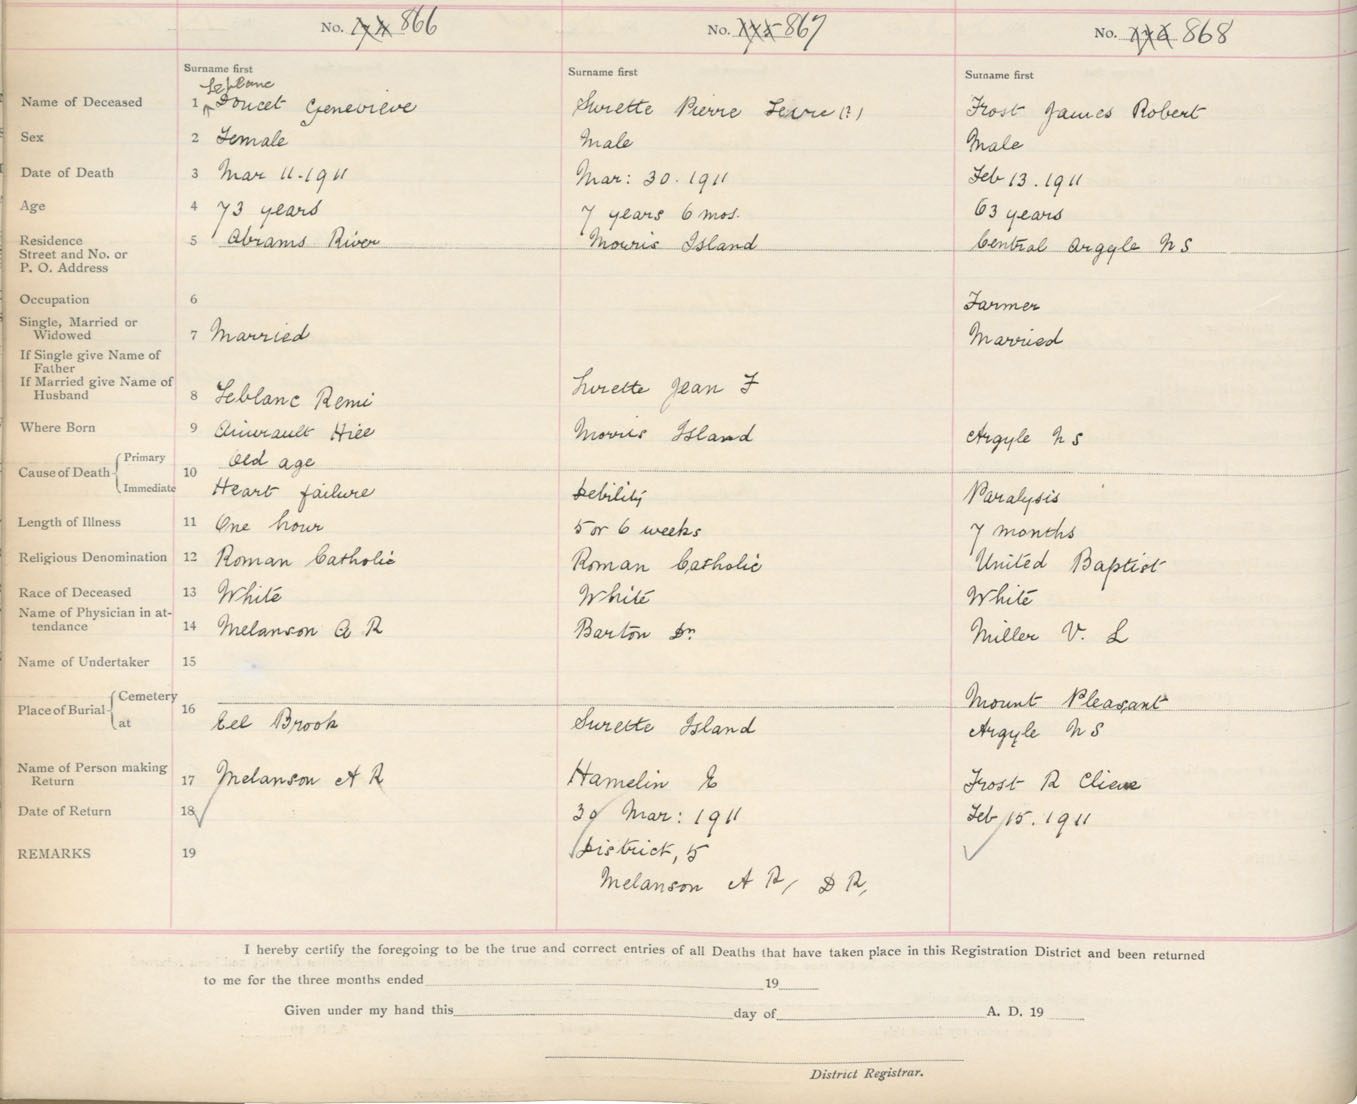 No. 866 No. 867 No. 868
Surname first Surname first Surname first
Leblanc
Name of Deceased 1 Doucet Genevieve Surette Pierre Levre (?) Frost James Robert
Sex 2 Female Male Male
Date of Death 3 Mar 11-1911 Mar: 30. 1911 Feb 13. 1911
Age 4 73 years 7 years 6 mos. 63 years
Residence 5 Abrams River Morris Island Central Argyle N S
Street and No. or
P. O. Address
Occupation 6 Farmer
Single, Married or
Widowed 7 Married Married
If Single give Name of
Father
If Married give Name of
Husband 8 Leblanc Remi Surette Jean F
Where Born 9 Amirault Hill Morris Island Argyle N S
Primary Old age
Cause of Death 10
Immediate Heart failure Debility Paralysis
Length of Illness 11 One hour 5 or 6 weeks 7 months
Religious Denomination 12 Roman Catholic Roman Catholic United Baptist
Race of Deceased 13 White White White
Name of Physician in at-
tendance 14 Melanson A R Barton Dr. Miller V. L
Name of Undertaker 15
Cemetery Mount Pleasant
Place of Burial 16
at Eel Brook Surette Island Argyle N S
Name of Person making
Return 17 Melanson A R Hamelin E Frost R
Date of Return 18 30 Mar: 1911 Feb 15. 1911
REMARKS 19 District, 5
Melanson A R, D R,
I hereby certify the foregoing to be the true and correct entries of all Deaths that have taken place in this Registration District and been returned
to me for the three months ended 19
Given under my hand this day of A. D. 19
District Registrar.